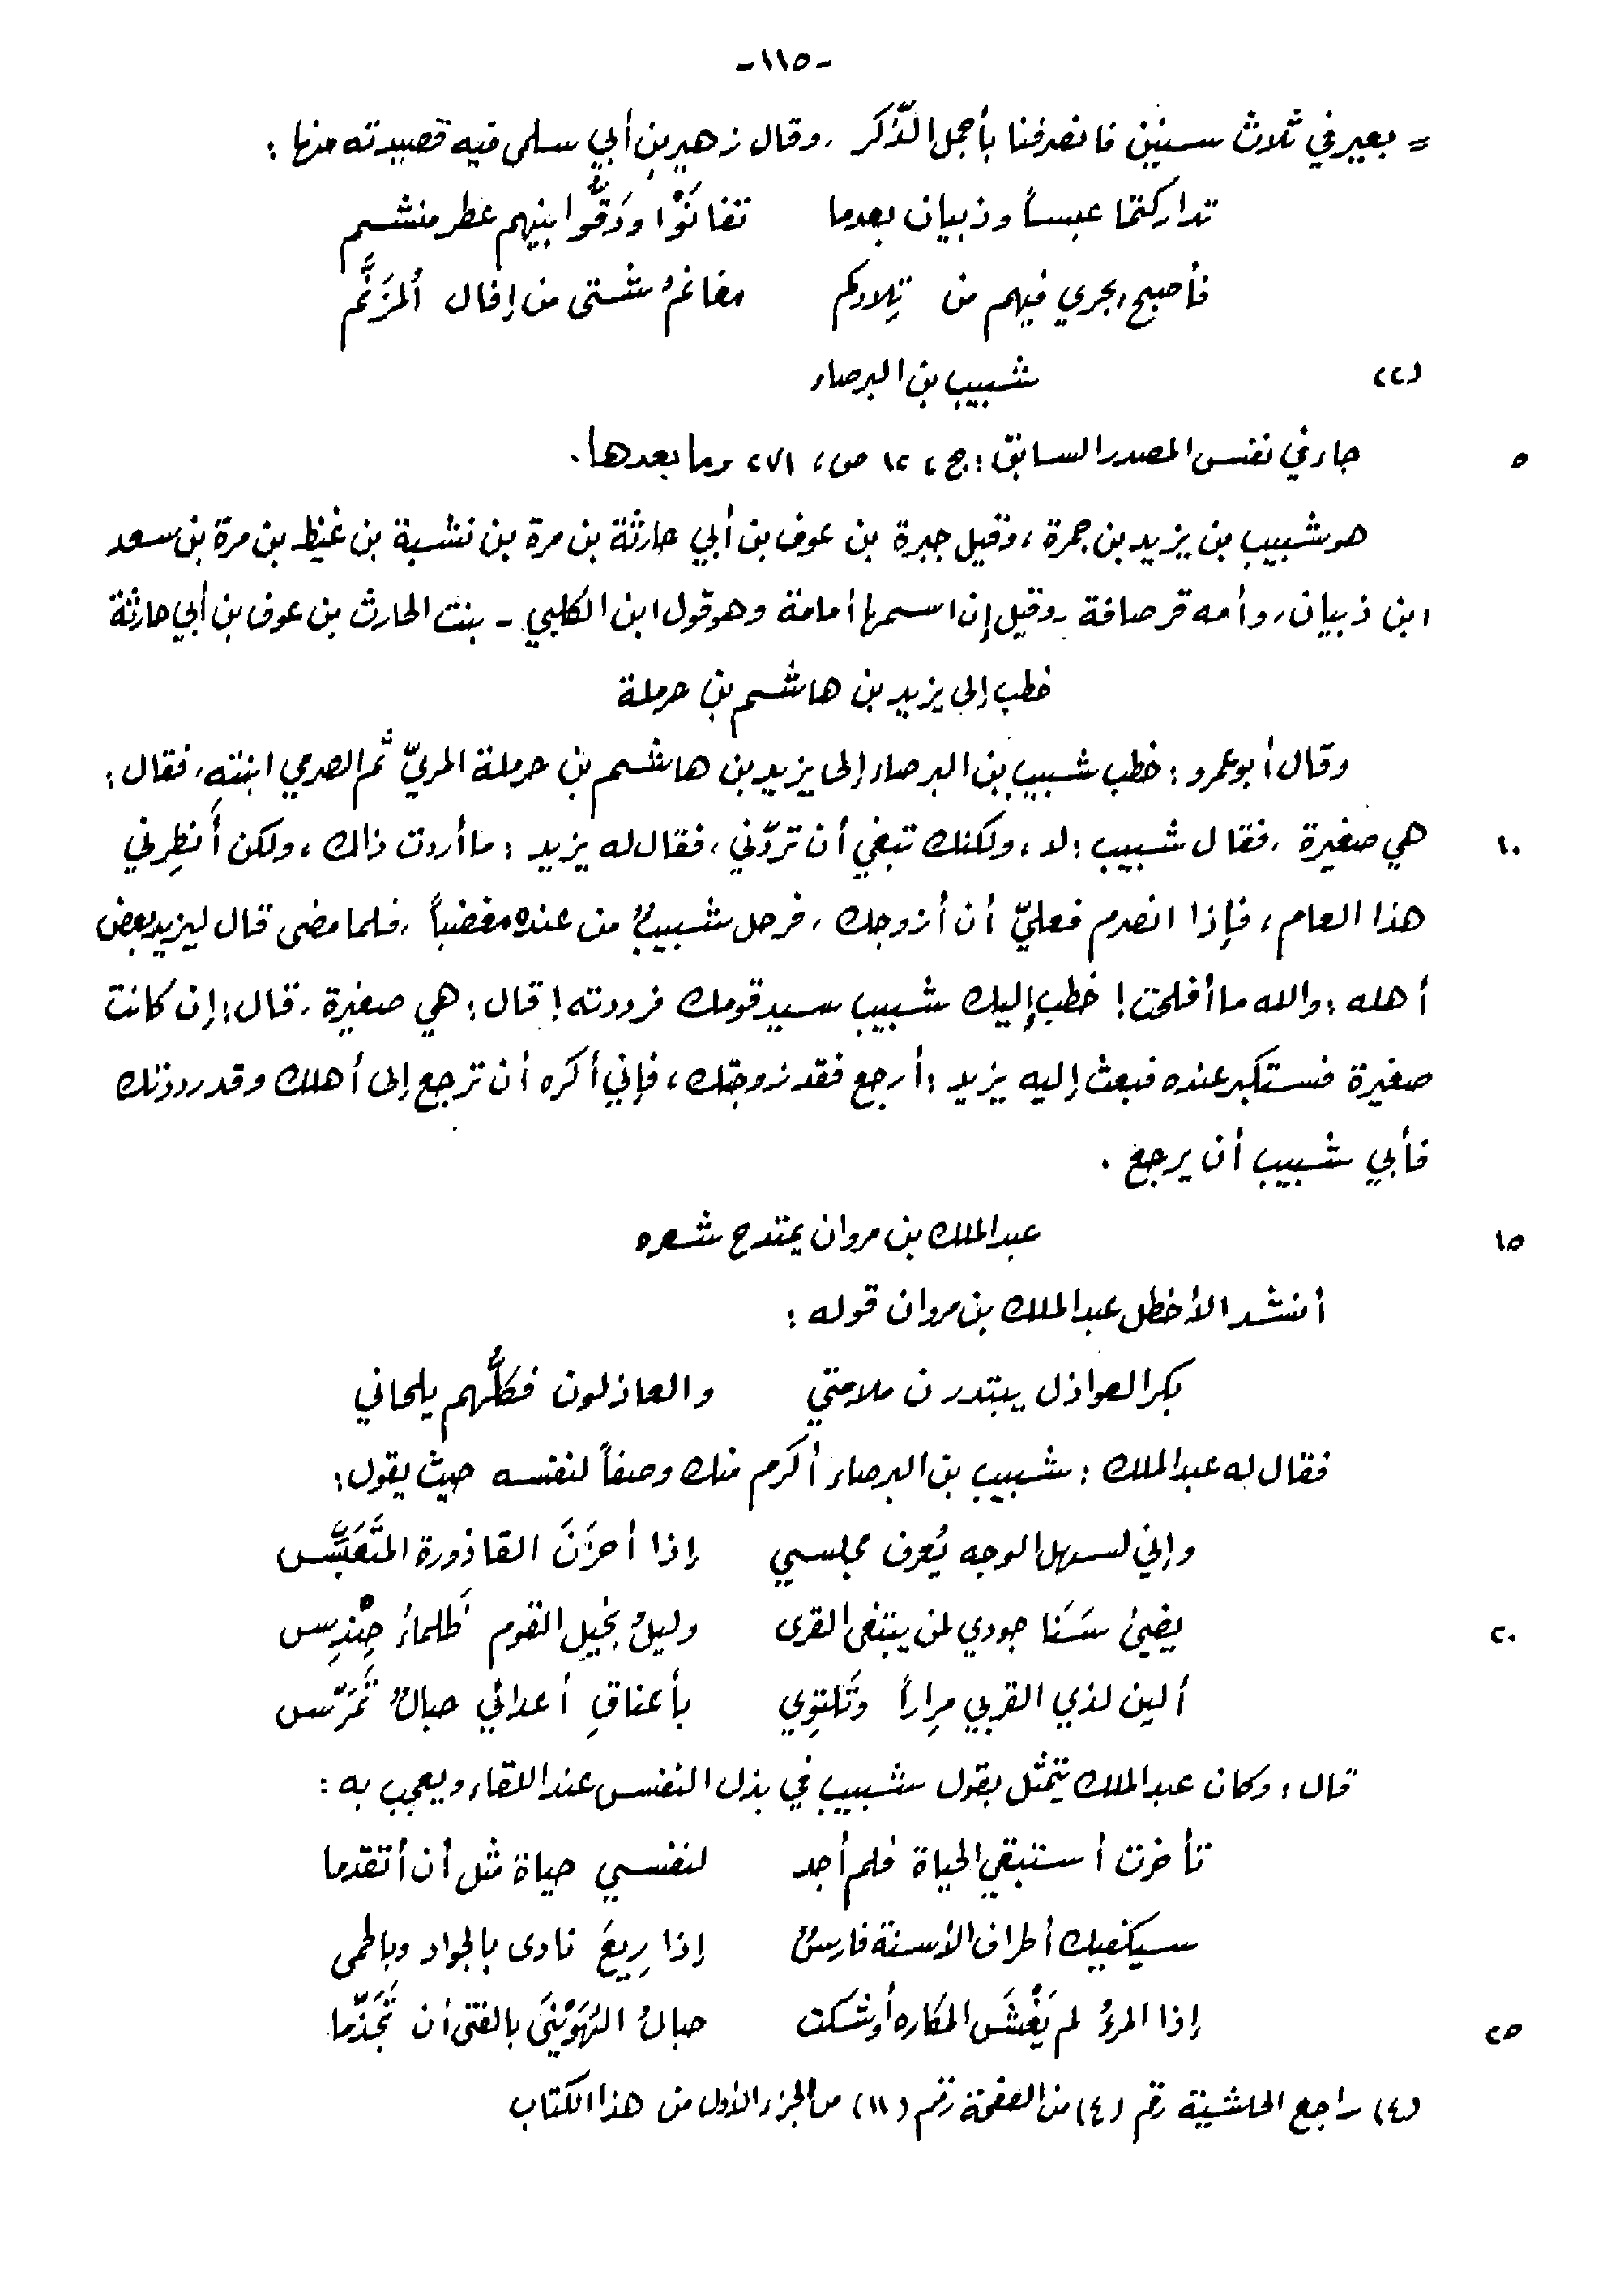 -١١٥-
= بعير في ثلاث سنين فانصرفنا بأجمل الذّكر، وقال زهير بن أبي سلمى فيه قصيدته منها :
تداركتما عبساً وذبيان بعدما تفانَوْا ودَقُّوا بينهم عطر منشم
فأصبح يجري فيهم من تِلادكم مغانمُ شتى من إفال المُزَنَّم
(٢) شبيب بن البرصاء
٥ جاء في نفس المصدر السابق : ج، ١٢ ص، ٢٧١ وما بعدها.
هو شبيب بن يزيد بن جمرة، وقيل جبرة بن عوف بن أبي حارثة بن مرة بن نشبة بن غيظ بن مرة بن سعد
ابن ذبيان، وأمه قرصافة - وقيل إن اسمها أمامة وهو قول ابن الكلبي - بنت الحارث بن عوف بن أبي حارثة
خطب إلى يزيد بن هاشم بن حرملة
وقال أبو عمرو : خطب شبيب بن البرصاء إلى يزيد بن هاشم بن حرملة المريّ ثم الصرمي ابنته، فقال :
١٠ هي صغيرة، فقال شبيب : لا، ولكنك تبغي أن تردّني، فقال له يزيد : ما أردت ذاك، ولكن أَنظِرني
هذا العام، فإذا انصرم فعليّ أن أزوجك، فرحل شبيبٌ من عنده مغضباً، فلما مضى قال ليزيد بعض
أهله : والله ما أفلحت! خطب إليك شبيب سيد قومك فرددته! قال : هي صغيرة، قال : إن كانت
صغيرة فستكبر عنده فبعث إليه يزيد : أرجع فقد زوجتك، فإني أكره أن ترجع إلى أهلك وقد رددتك
فأبي شبيب أن يرجع .
١٥ عبد الملك بن مروان يمتدح شعره
أنشد الأخطل عبد الملك بن مروان قوله :
بكر العواذل يبتدرن ملامتي والعاذلون فكلُّهم يلحاني
فقال له عبد الملك : شبيب بن البرصاء أكرم منك وصفاً لنفسه حيث يقول :
وإني لسهل الوجه يُعرف مجلسي إذا أحزَنَ القاذورة المتَعَبِّس
٢٠ يضيئ سَنَا جودي لمن يبتغي القرى وليلُ بخيل القوم ظَلماءُ حِنْدِس
ألين لذي القربي مِراراً وتَلتوِي بأعناقِ أعدائي حبالٌ تَمَرّس
قال : وكان عبد الملك يتمثل بقول شبيب في بذل النفس عند اللقاء ويعجب به :
تأخرت أستبقي الحياة فلم أجد لنفسي حياة مثل أن أتقدما
سيكفيك أطراف الأسنة فارسٌ إذا رِيعَ نادى بالجواد وبالحمى
٢٥ إذا المرءُ لم يَغْشَ المكاره أوشكت حبالُ الهُوَيْنَى بالفتى أن تَجَذّما
(٤) راجع الحاشية رقم (٤) من الصفحة رقم (١١) من الجزء الأول من هذا الكتاب